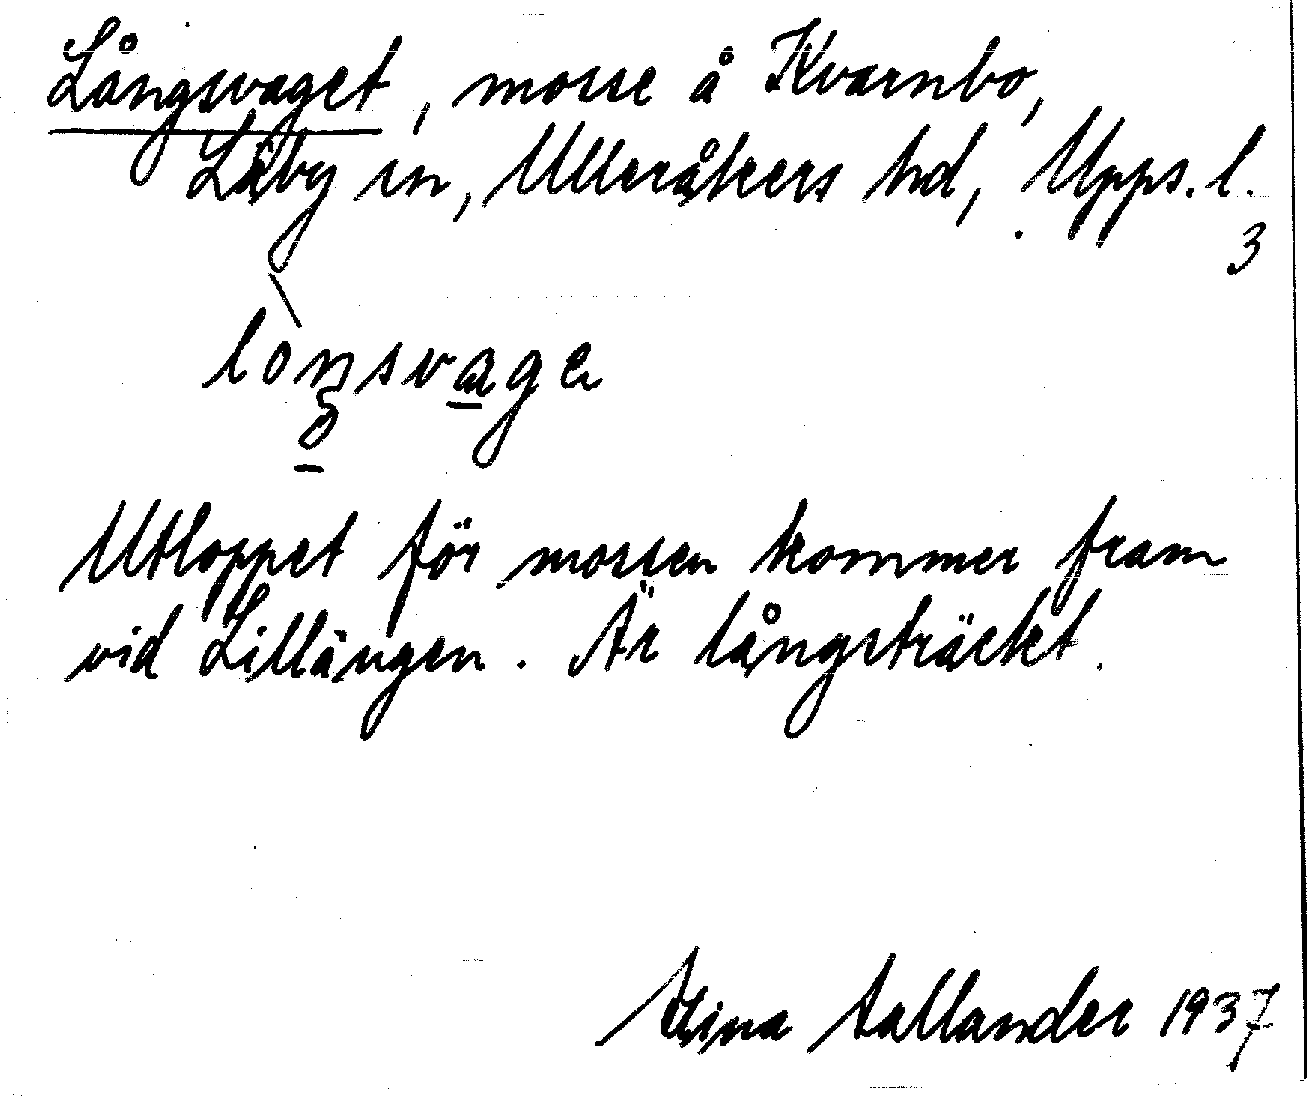 Långsvaget, mosse å Kvarnbo,
Läby sn, Ulleråkers hd, Upps. l.
3
lòŋsvage
Utloppet för mossen kommer fram
vid Lillängen. Är långsträckt.
Stina Sallander 1937